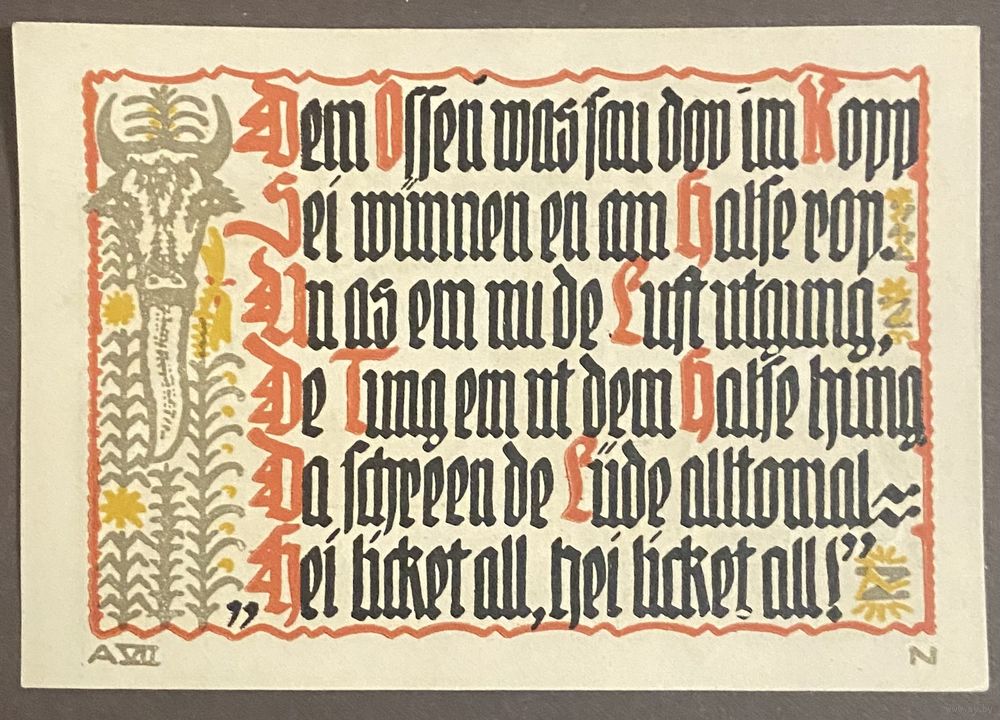 Dem Ossen was sau dov im Kopp
Sei wünnen en am Halse rop.
Un as em nu de Luft utgung,
De Tung em ut dem Halse hung
Da schreeen de Lüde alltomal
„Hei licket all, hei licket all!”
A VII
N
www.ay.by